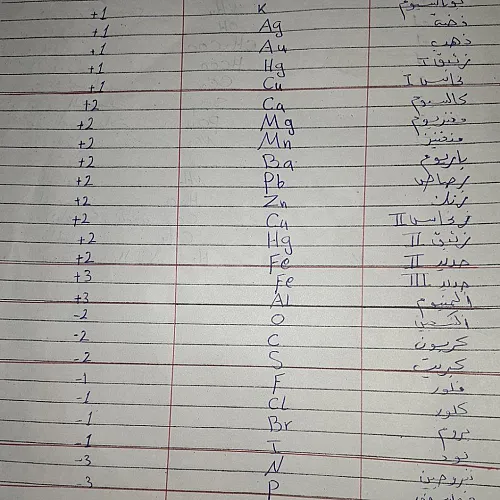 +1 K بوتاسيوم
+1 Ag فضة
+1 Au ذهب
+1 Hg زئبق I
+1 Cu نحاس I
+2 Ca كالسيوم
+2 Mg مغنزيوم
+2 Mn منغنيز
+2 Ba باريوم
+2 Pb رصاص
+2 Zn زنك
+2 Cu نحاس II
+2 Hg زئبق II
+2 Fe حديد II
+3 Fe حديد III
+3 Al المنيوم
-2 O اكسجين
-2 C كربون
-2 S كبريت
-1 F فلور
-1 Cl كلور
-1 Br بروم
-1 I يود
-3 N نيتروجين
-3 P